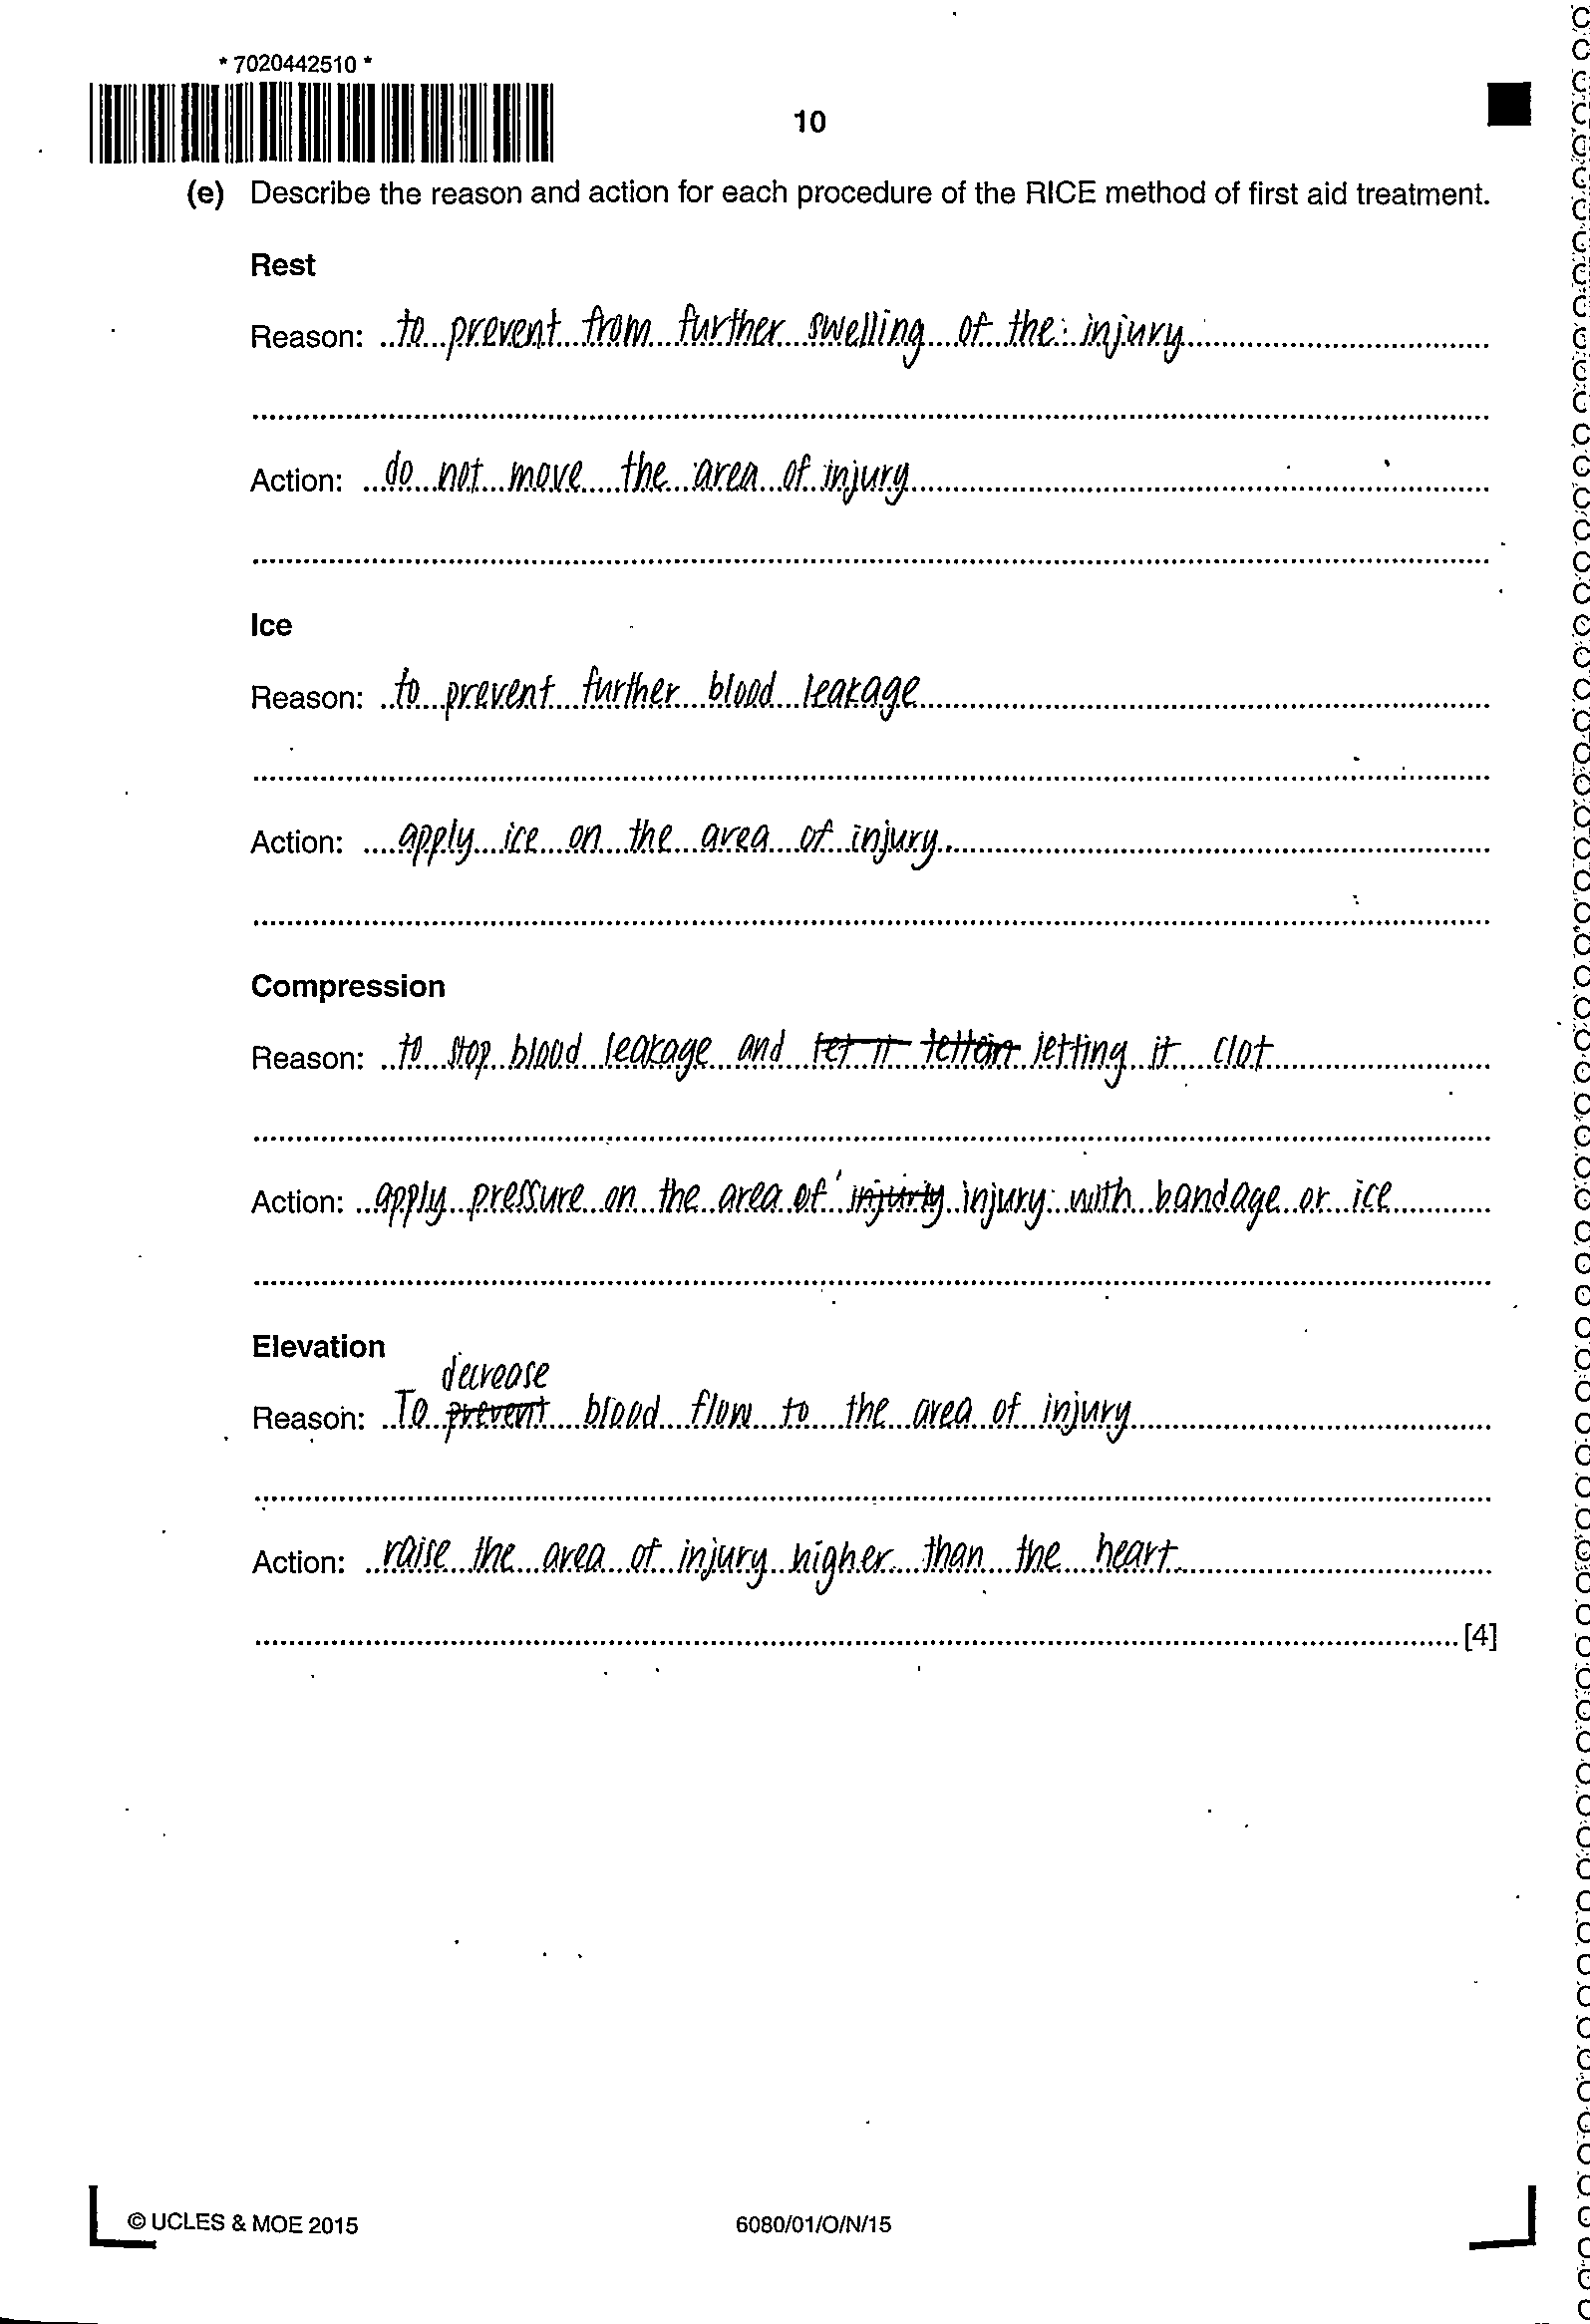 * 7020442510 *
10
(e) Describe the reason and action for each procedure of the RICE method of first aid treatment.
Rest
Reason: to prevent from further swelling of the injury
Action: do not move the area of injury
Ice
Reason: to prevent further blood leakage
Action: apply ice on the area of injury
Compression
Reason: to stop blood leakage and let it letting it clot
Action: apply pressure on the area of injury injury with bandage or ice
Elevation
decrease
Reason: To prevent blood flow to the area of injury
Action: raise the area of injury higher than the heart
[4]
© UCLES & MOE 2015
6080/01/O/N/15